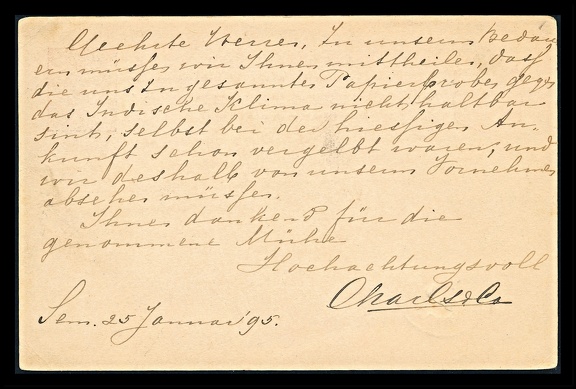 Geehrte Herren, In unserm Bedau
ern müssen wir Ihnen mittheilen, dass
die uns Ingesannten Papierproben gegen
das Indische Klima nicht haltbar
sind, selbst bei der hiesigen An-
kunft schon vergelbt waren, und
wir deshalb von unserm Vornehmen
absehen müssen.
Ihnen dankend für die
genommene Mühe
Hochachtungsvoll
Sem. 25 Januar '95.